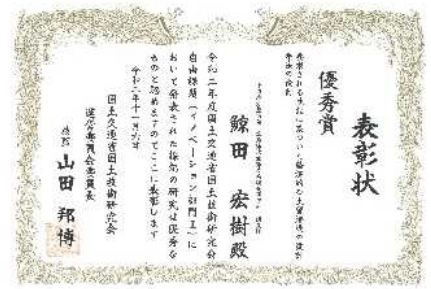 表彰状
優秀賞
鯨田 宏樹殿
令和二年度国土交通省国土技術研究会
自由課題(イノベーション部門Ⅱ)に
おいて発表された貴方の研究は優秀な
ものと認めますのでここに表彰します
令和二年十一月六日
国土交通省国土技術研究会
運営委員会委員長
技監 山田 邦博